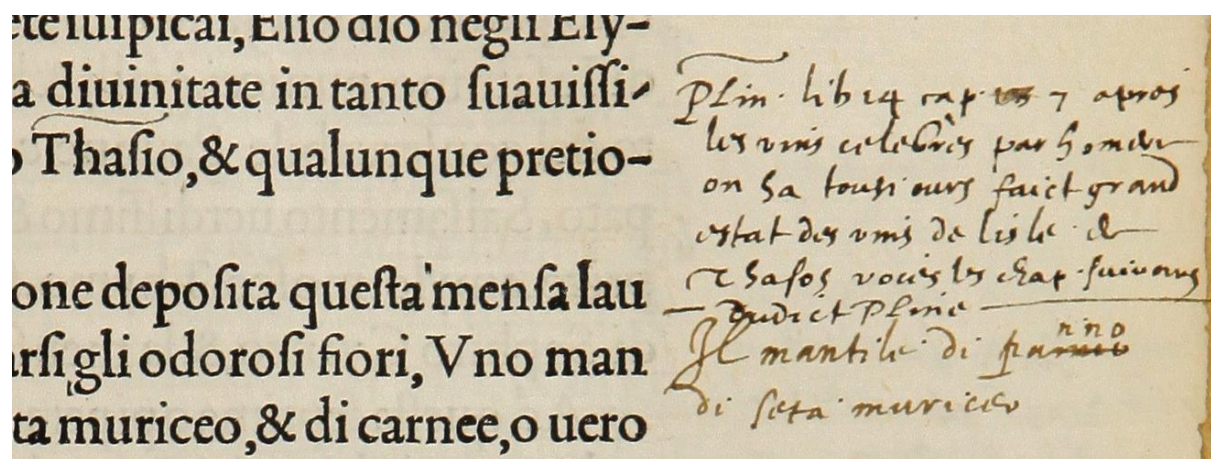 ete suspicai, Elio dio negli Ely-
a diuinitate in tanto suauissi-
o Thasio, & qualunque pretio-
one deposita questa mensa lau
arsi gli odorosi fiori, Vno man
ta muriceo, & di carnee, o uero
Plin. lib 14 cap. 7 apres
les vins celebrès par homere
on ha tousiours faict grand
estat des vins de lisle de
Thasos voiès les chap. suivans
dudict Pline
Il mantile di panno
di seta muriceo